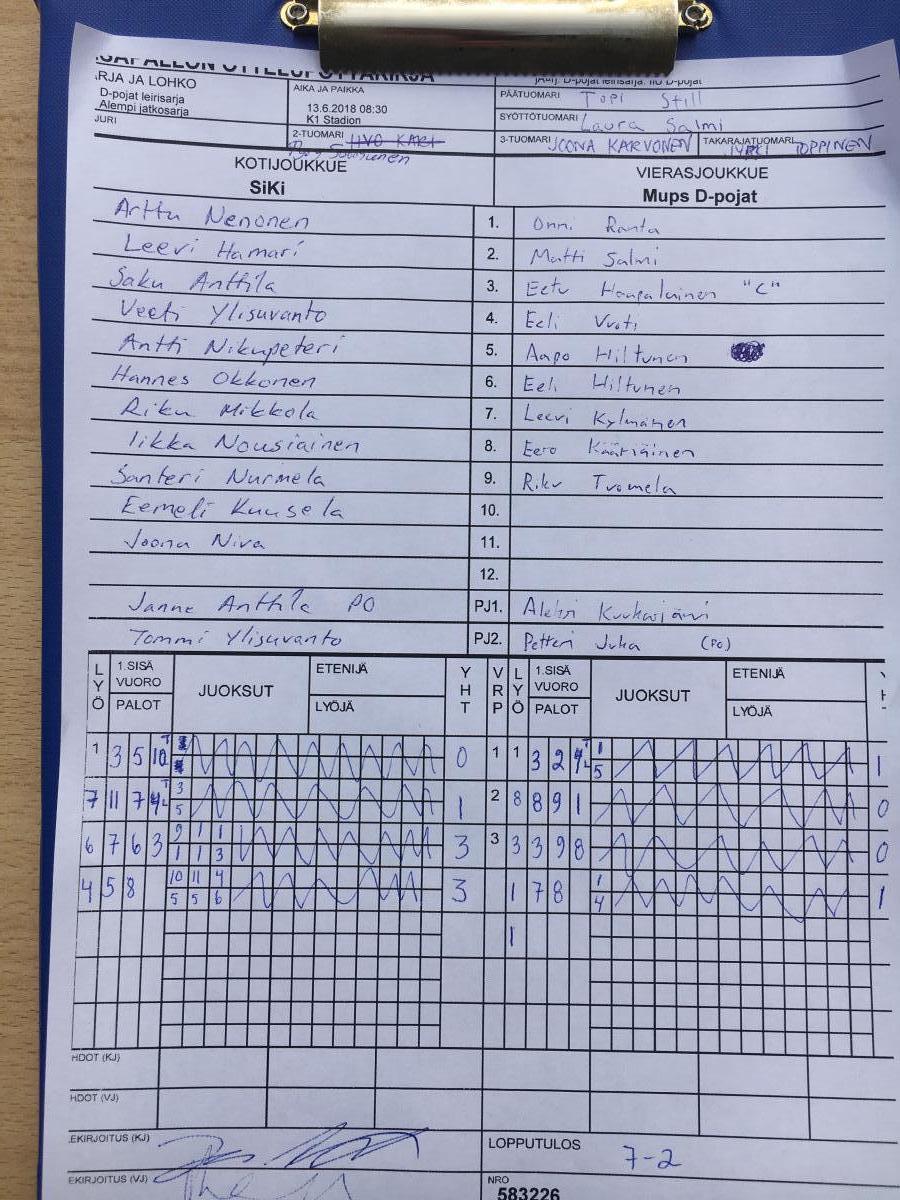 RJA JA LOHKO
D-pojat leirisarja
Alempi jatkosarja
JURI
AIKA JA PAIKKA
13.6.2018 08:30
K1 Stadion
2-TUOMARI
PÄÄTUOMARI Topi Still
SYÖTTÖTUOMARI Laura Salmi
3-TUOMARI JOONA KARVONEN TAKARAJATUOMARI TOPPINEN
KOTIJOUKKUE VIERASJOUKKUE
SiKi Mups D-pojat
Arttu Nenonen 1. Onni Ranta
Leevi Hamari 2. Matti Salmi
Saku Anttila 3. Eetu Haapalainen "C"
Veeti Ylisuvanto 4. Eeli Vuoti
Antti Nikupeteri 5. Aapo Hiltunen
Hannes Okkonen 6. Eeli Hiltunen
Riku Mikkola 7. Leevi Kylmänen
Iikka Nousiainen 8. Eero Kääriäinen
Santeri Nurmela 9. Riku Tuomela
Eemeli Kuusela 10.
Joona Niva 11.
12.
Janne Anttila PO PJ1. Aleksi Kuukasjärvi
Tommi Ylisuvanto PJ2. Petteri Juka (PO)
LYÖ 1.SISÄ VUORO PALOT JUOKSUT ETENIJÄ LYÖJÄ YHT VRP LYÖ 1.SISÄ VUORO PALOT JUOKSUT ETENIJÄ LYÖJÄ
1 3 5 10 0 1 1 3 2 1 1
5
7 11 7 3 1 2 8 8 9 1 0
5
6 7 6 3 9 1 1 3 3 3 3 9 8 0
1 1 3
4 5 8 10 11 4 3 1 7 8 1 1
5 5 6 4
1
HDOT (KJ)
HDOT (VJ)
EKIRJOITUS (KJ) LOPPUTULOS 7-2
EKIRJOITUS (VJ) NRO
583226